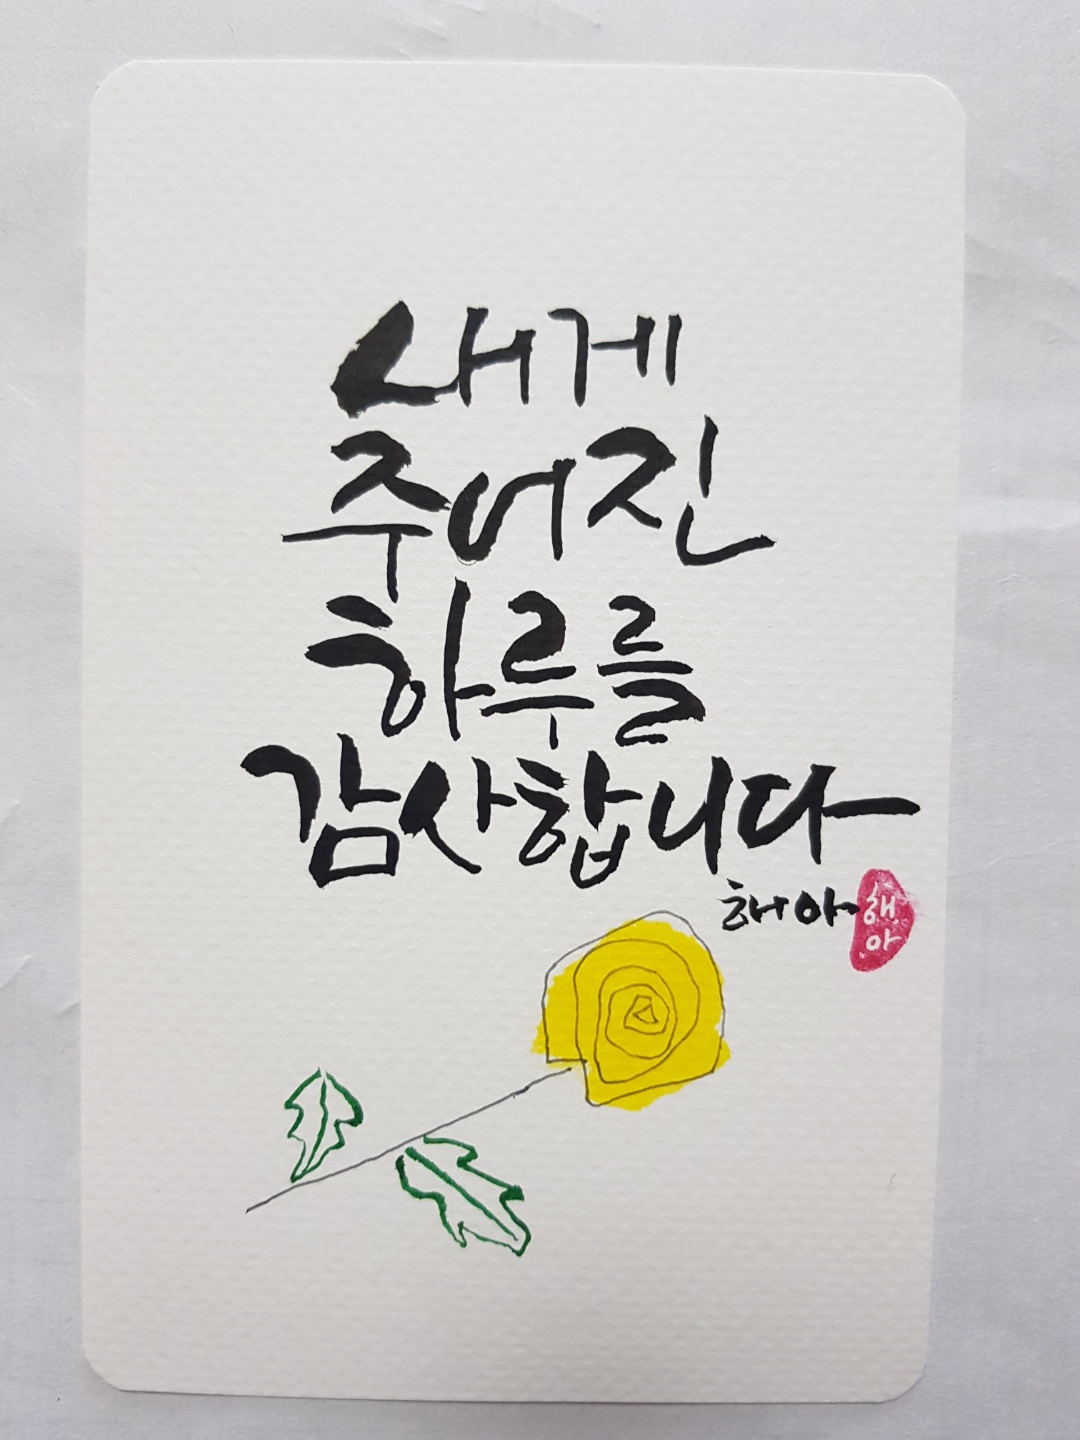 내게
주어진
하루를
감사합니다
해아
해
아